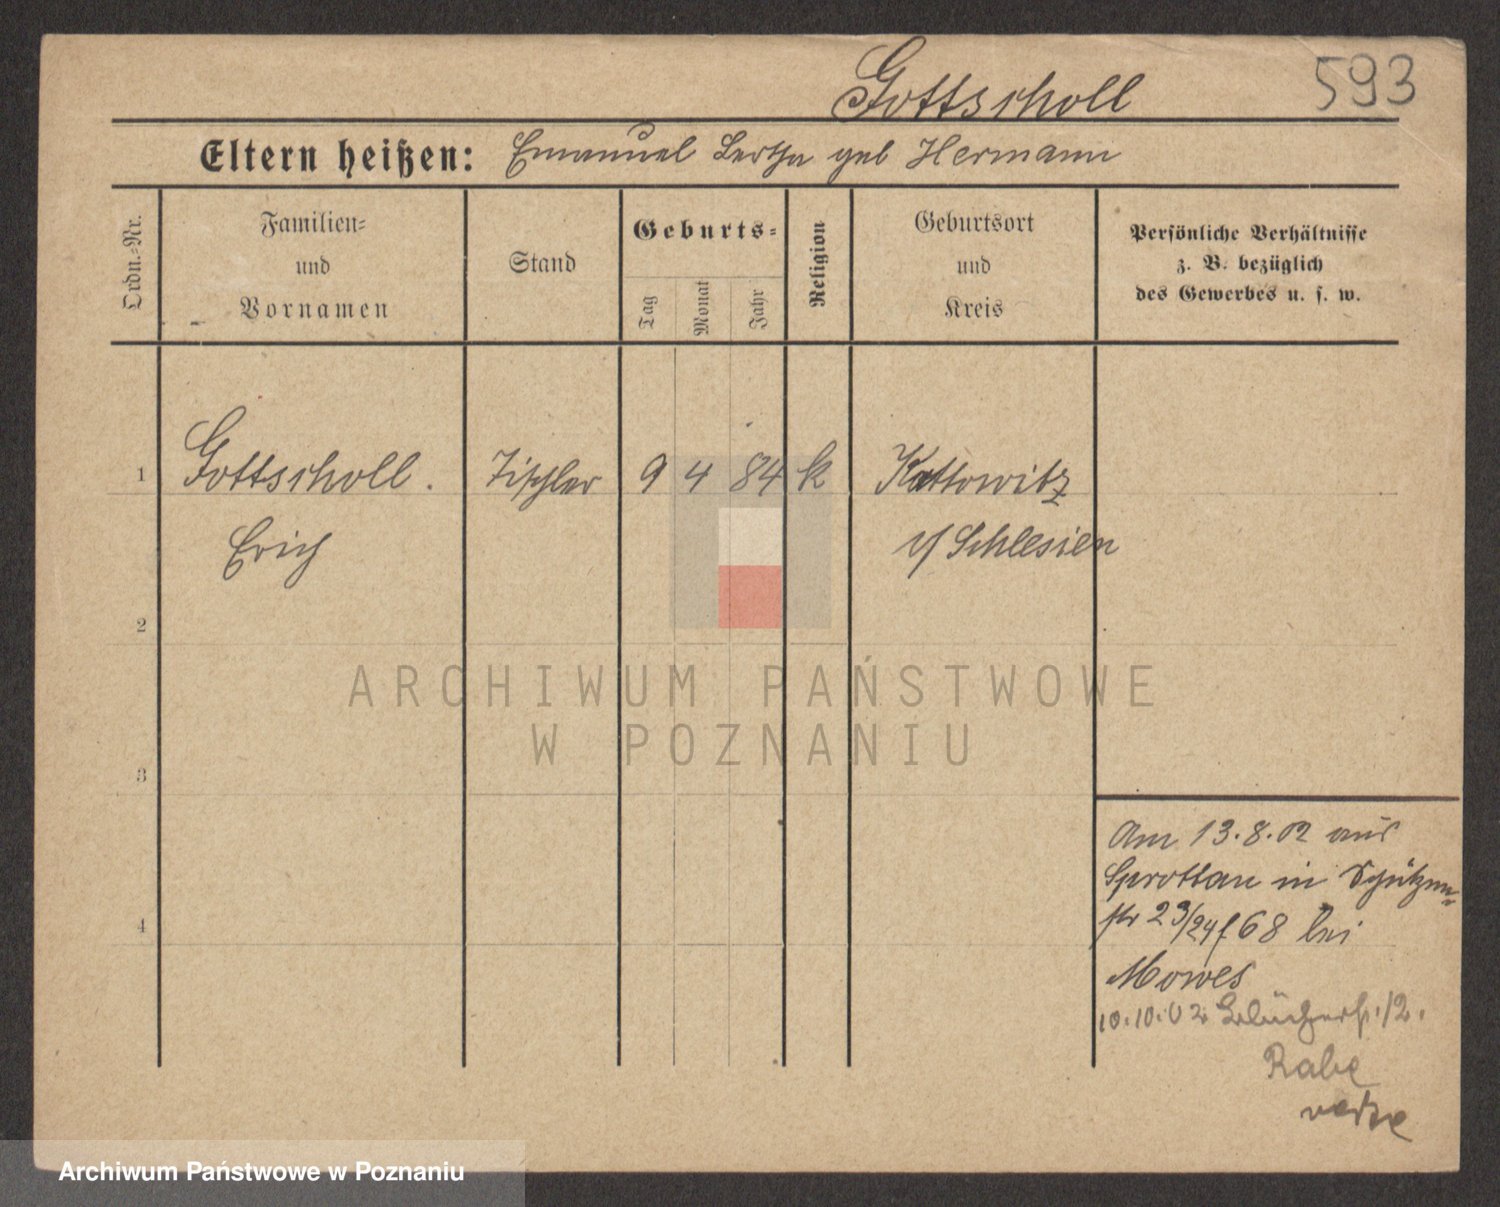 Gottscholl 593
Eltern heißen: Emanuel Bertha geb Hermann
Ordn.=Nr. Familien= und Vornamen Stand Geburts= Tag Monat Jahr Religion Geburtsort und Kreis Persönliche Verhältnisse z. B. bezüglich des Gewerbes u. s. w.
1 Gottscholl. Tischler 9 4 84 k Kattowitz
Erich i/ Schlesien
2
ARCHIWUM PAŃSTWOWE
W POZNANIU
3
Am 13.8.02 aus
Sprottau in Schützen=
4 str 23/24 f 68 bei
Mowes
10.10.02 Blücherstr. 12.
Rabe
Archiwum Państwowe w Poznaniu